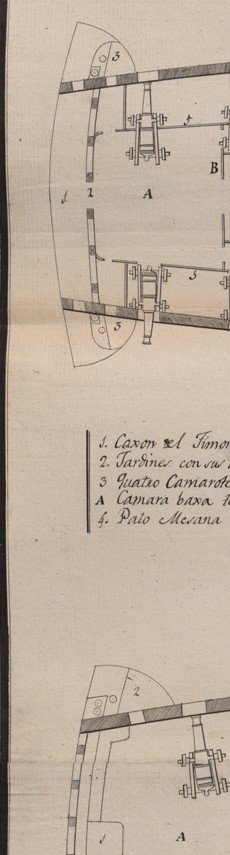 3
5
B
1
2
A
5
3
1. Caxon del Timon
2. Jardines con sus
3 Quatro Camarote
A Camara baxa
4. Palo Mesana
2
1
A